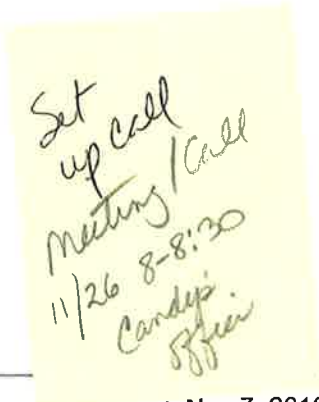 Set
up call
Meeting / Call
11/26 8-8:30
Candy's
Office
Nov 7, 2019